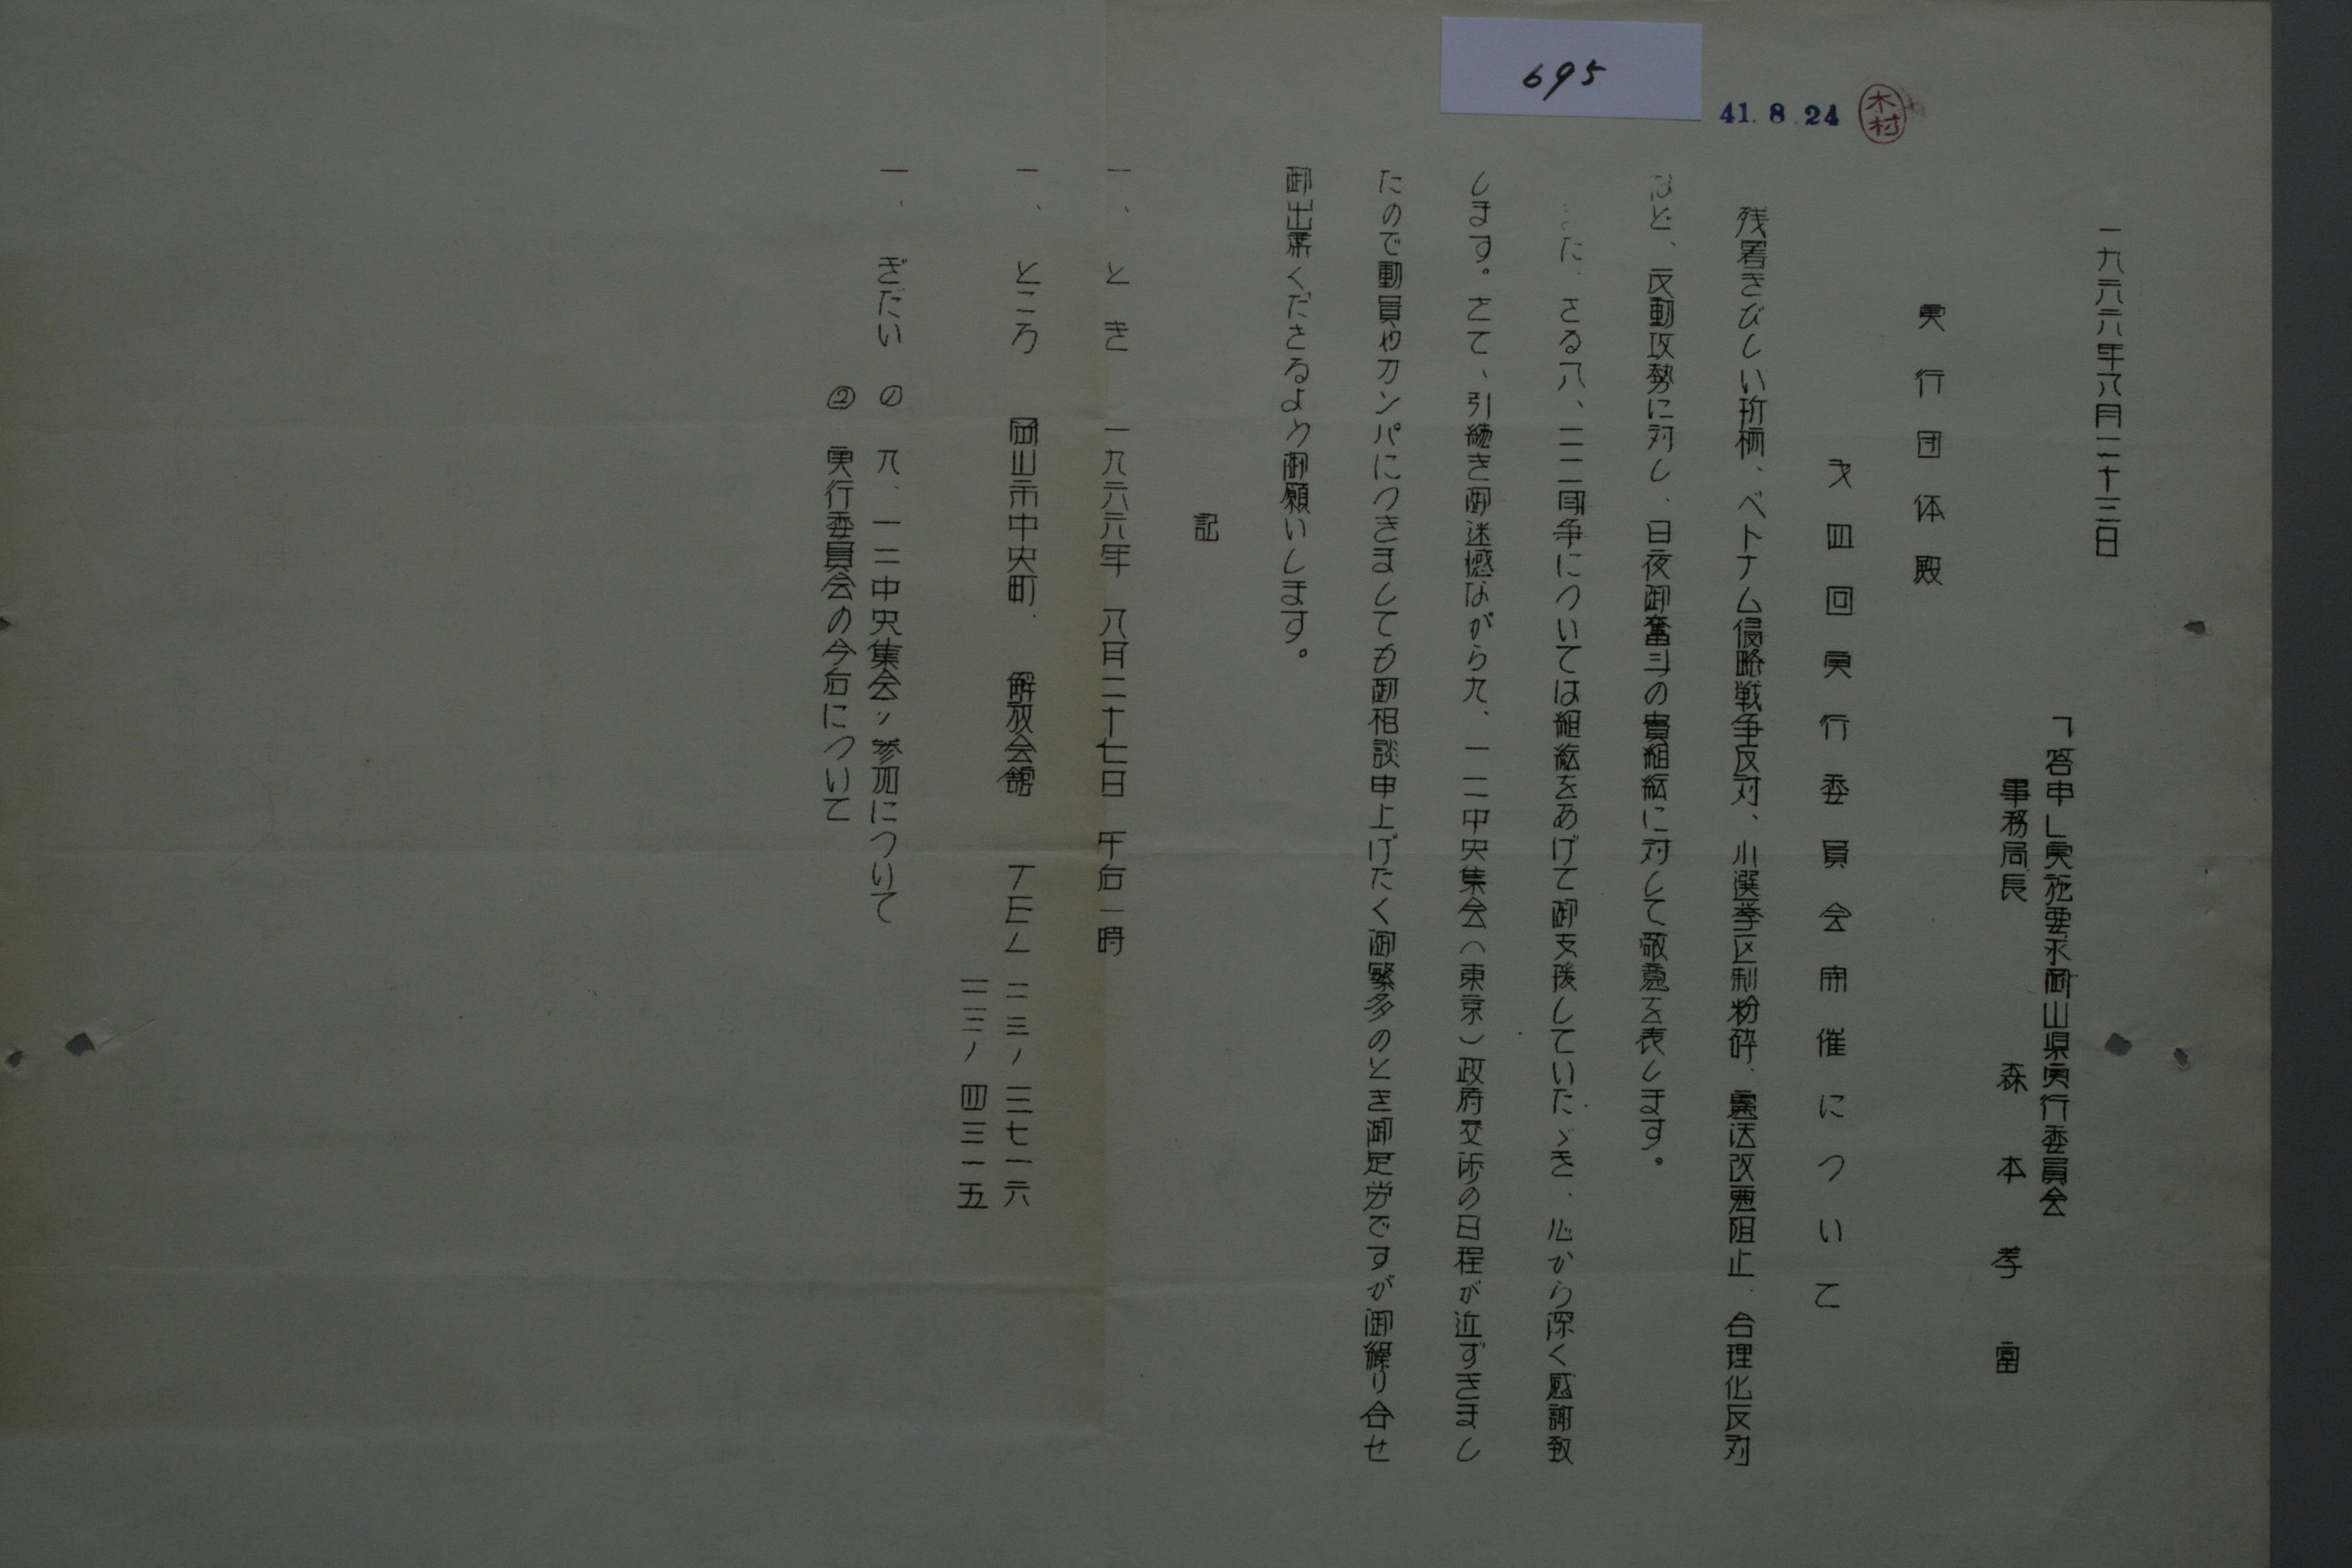 695
41.8.24
木村
一九六六年八月二十三日
「答申」実施要求岡山県実行委員会
事務局長 森本孝富
実行団体殿
才四回実行委員会開催について
残暑きびしい折柄、ベトナム侵略戦争反対、小選挙区制粉砕、憲法改悪阻止、合理化反対
など、反動攻勢に対し、日夜御奮斗の貴組織に対して敬意を表します。
また、さる八、二二斗争については組織をあげて御支援していたゞき、心から深く感謝致
します。さて、引続き御迷惑ながら九、一二中央集会（東京）政府交渉の日程が近ずきまし
たので動員やカンパにつきましても御相談申上げたく御繁多のとき御足労ですが御繰り合せ
御出席くださるよう御願いします。
記
一、とき 一九六六年 八月二十七日 午后一時
一、ところ 岡山市中央町、解放会館 TEL 二三ノ三七一六
二三ノ四三一五
一、ぎだい の 九、一二中央集会ノ参加について
② 実行委員会の今后について